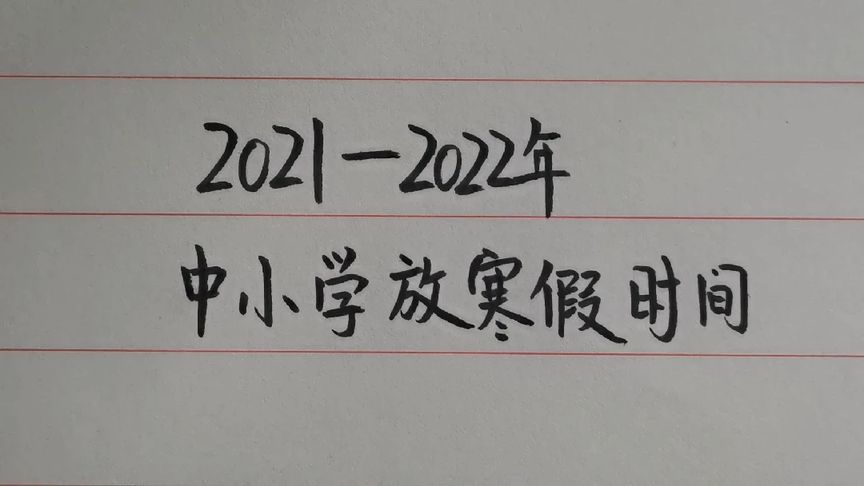 2021—2022年
中小学放寒假时间